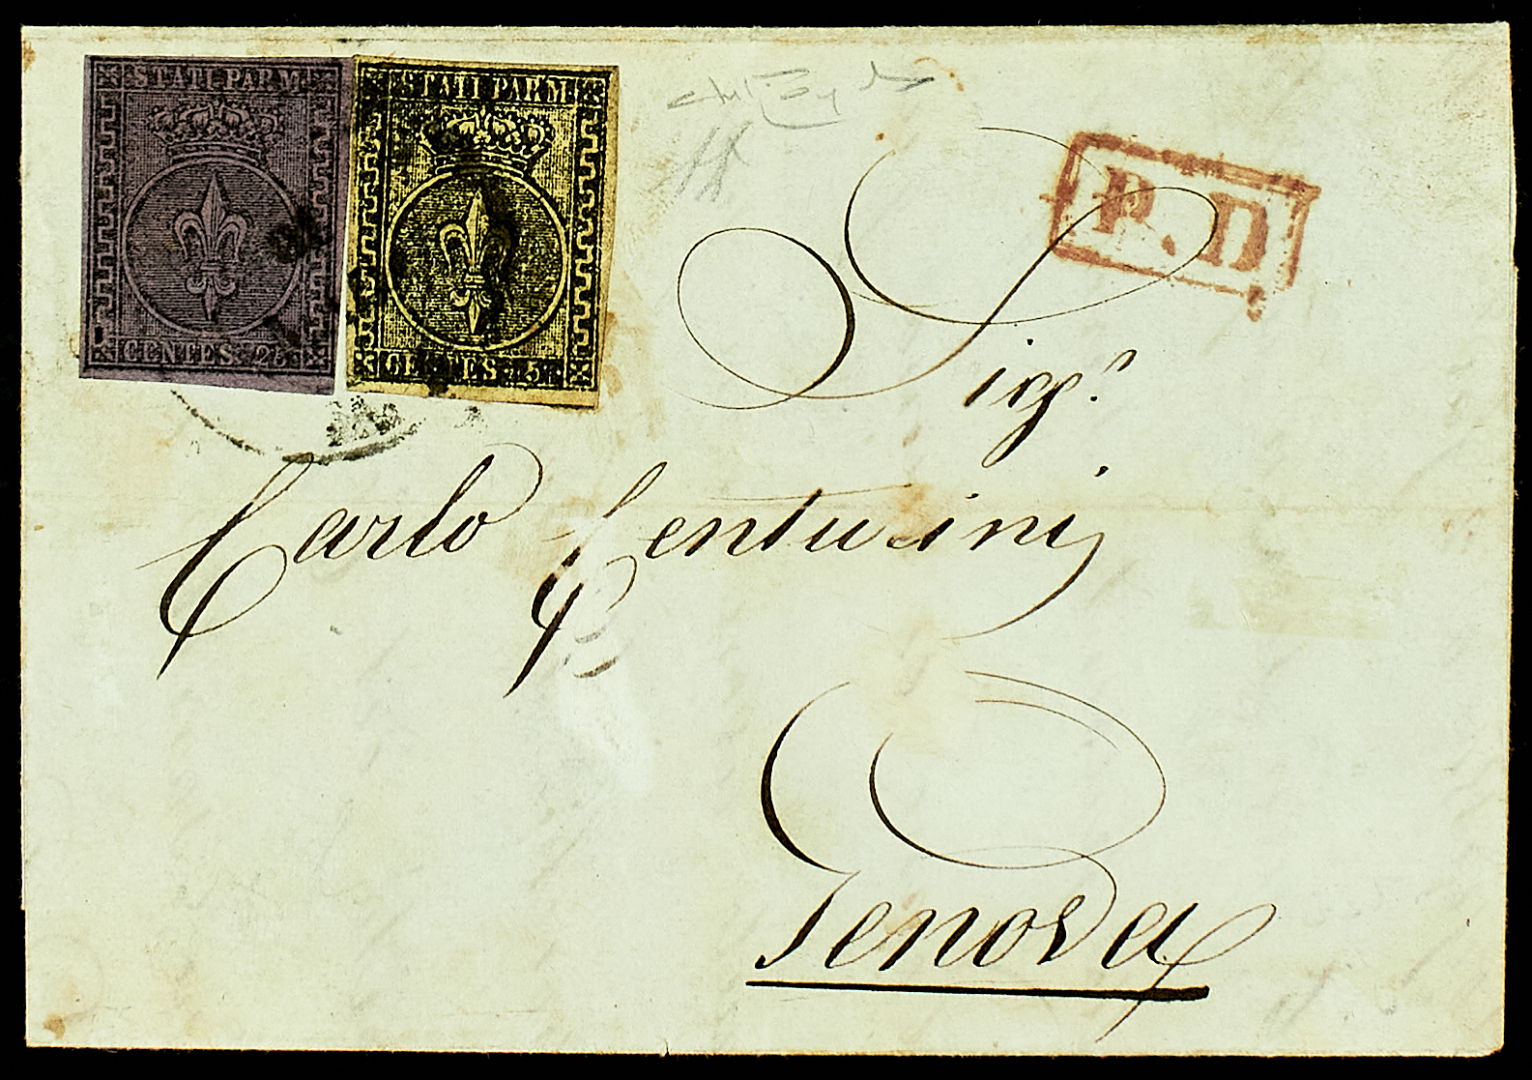 STATI PARM.
CENTES. 25
STATI PARM.
CENTES. 5
P.D
Sigr.
Carlo Centurini
Genova